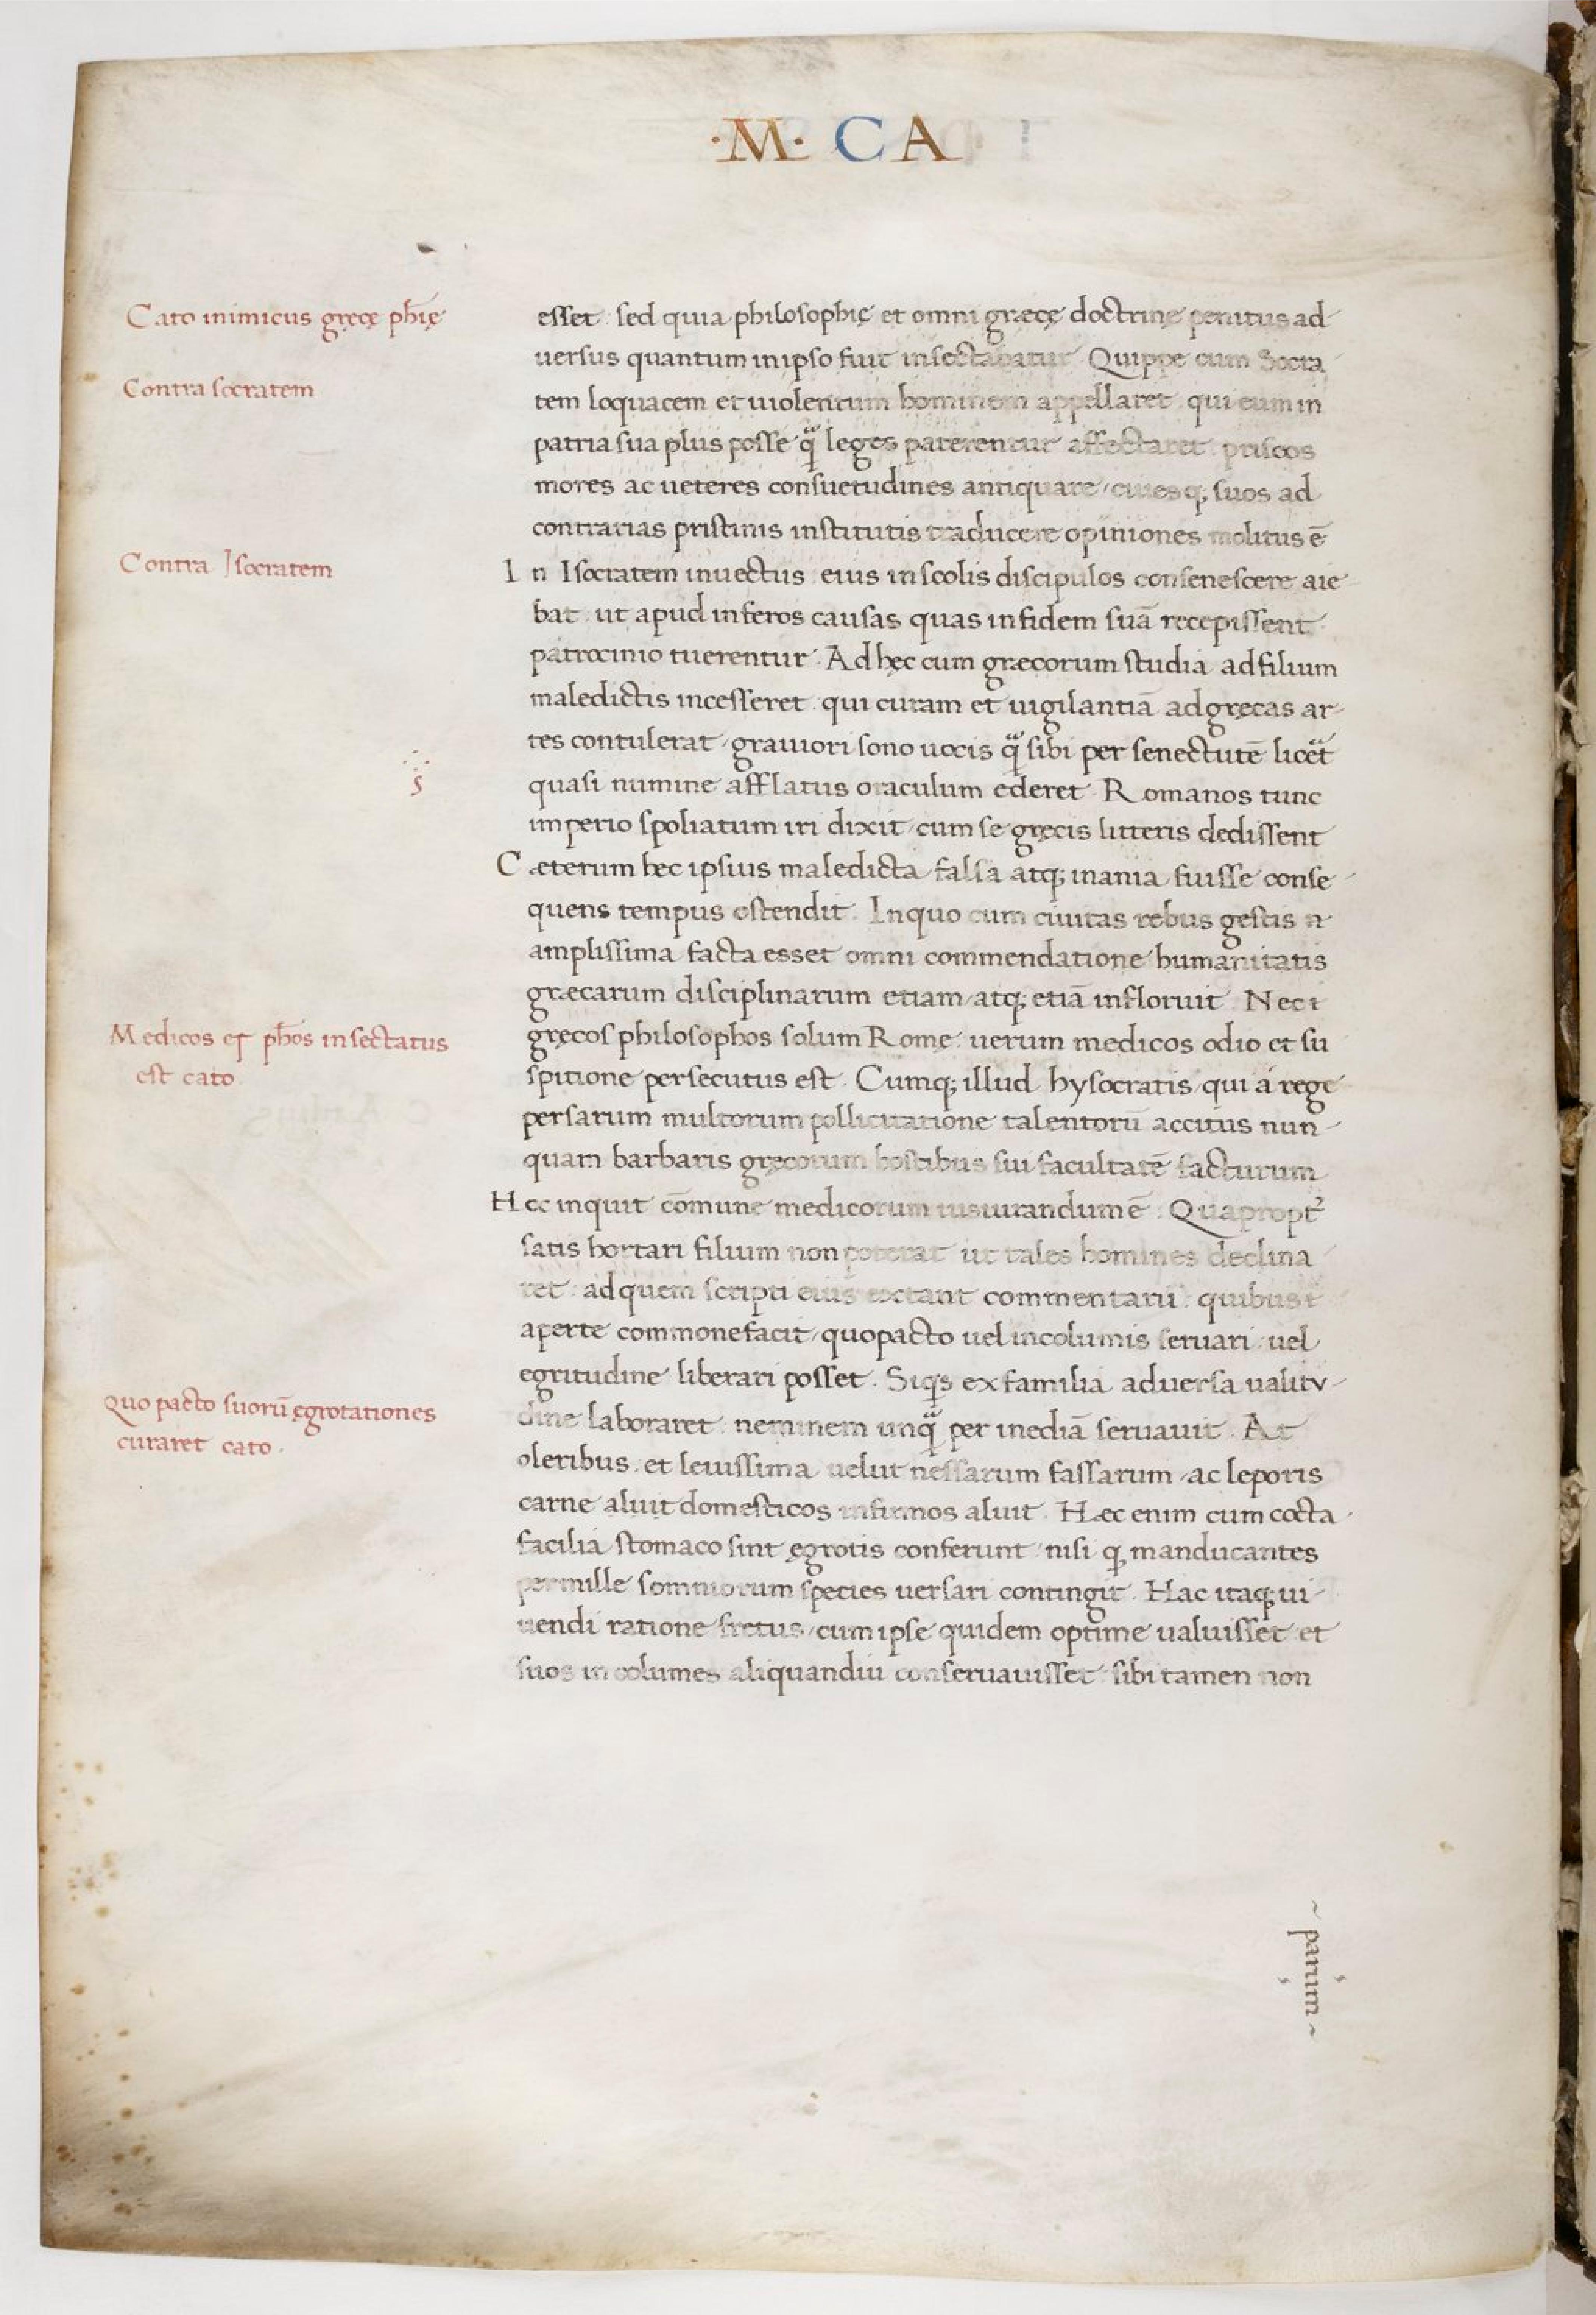 ·M· CA
Cato inimicus gręcę ph̄ię
Contra socratem
Contra Isocratem
Medicos et ph̄os insectatus
est cato
Quo pacto suorū ęgrotationes
curaret cato.
esset sed quia philosophię et omni græcę doctrinę penitus ad
uersus quantum in ipso fuit insectabatur Quippe cum Socra
tem loquacem et uiolentum hominem appellaret qui cum in
patria sua plus posse qᷓ leges parerentur affectaret priscos
mores ac ueteres consuetudines antiquare ciuesq; suos ad
contrarias pristinis institutis traducere opiniones molitus ē
In Isocratem inuectus eius in scolis discipulos consenescere aie
bat ut apud inferos causas quas in fidem suā recepissent
patrocinio tuerentur. Ad hęc cum græcorum studia ad filium
maledictis incesseret qui curam et uigilantiā ad gręcas ar
tes contulerat grauiori sono uocis qᷓ sibi per senectutē licēt
quasi numine afflatus oraculum ederet Romanos tunc
imperio spoliatum iri dixit cum se gręcis litteris dedissent
Cæterum hec ipsius maledicta falsa atq; inania fuisse conse
quens tempus ostendit. In quo cum ciuitas rebus gestis n
amplissima facta esset omni commendatione humanitatis
græcarum disciplinarum etiam atq; etiā infloruit Nec i
gręcos philosophos solum Romę uerum medicos odio et su
spitione persecutus est. Cumq; illud hysocratis qui á rege
persarum multorum pollicitatione talentorū accitus nun
quam barbaris gręcorum hostibus sui facultatē facturum
Hec inquit cōmune medicorum iusiurandum ē. Quapropt̉
satis hortari filium non poterat ut tales homines declina
ret ad quem scripti eius extant commentarii quibus
aperte commonefacit quo pacto uel incolumis seruari uel
egritudine liberari posset. Siqs ex familia aduersa ualitu
dine laboraret neminem unqᷓ per inediā seruauit. At
oleribus et leuissima uelut nessarum fassarum ac leporis
carne aluit domesticos infirmos aluit. Hæc enim cum cocta
facilia stomaco sint ęgrotis conferunt nisi q̨ manducantes
per mille somniorum species uersari contingit. Hac itaq; ui
uendi ratione fretus cum ipse quidem optime ualuisset et
suos incolumes aliquandiu conseruauisset sibi tamen non
~ parum ~